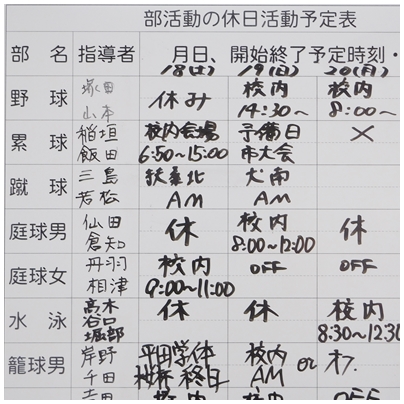 部活動の休日活動予定表
部 名 指導者 月日、開始終了予定時刻・
18(土) 19(日) 20(月)
野 球 塚田 山本 休み 校内 14:30～ 校内 8:00～
累 球 稲垣 飯田 校内会場 6:50～15:00 予備日 市大会 ×
蹴 球 三島 若松 扶桑北 AM 犬南 AM
庭球男 仙田 倉知 休 校内 8:00～12:00 休
庭球女 丹羽 相津 校内 9:00～11:00 OFF OFF
水 泳 高木 谷口 堀部 休 休 校内 8:30～12:30
籠球男 岸野 千田 平田学体 終日 校内 AM or オフ
校内 校内 OFF